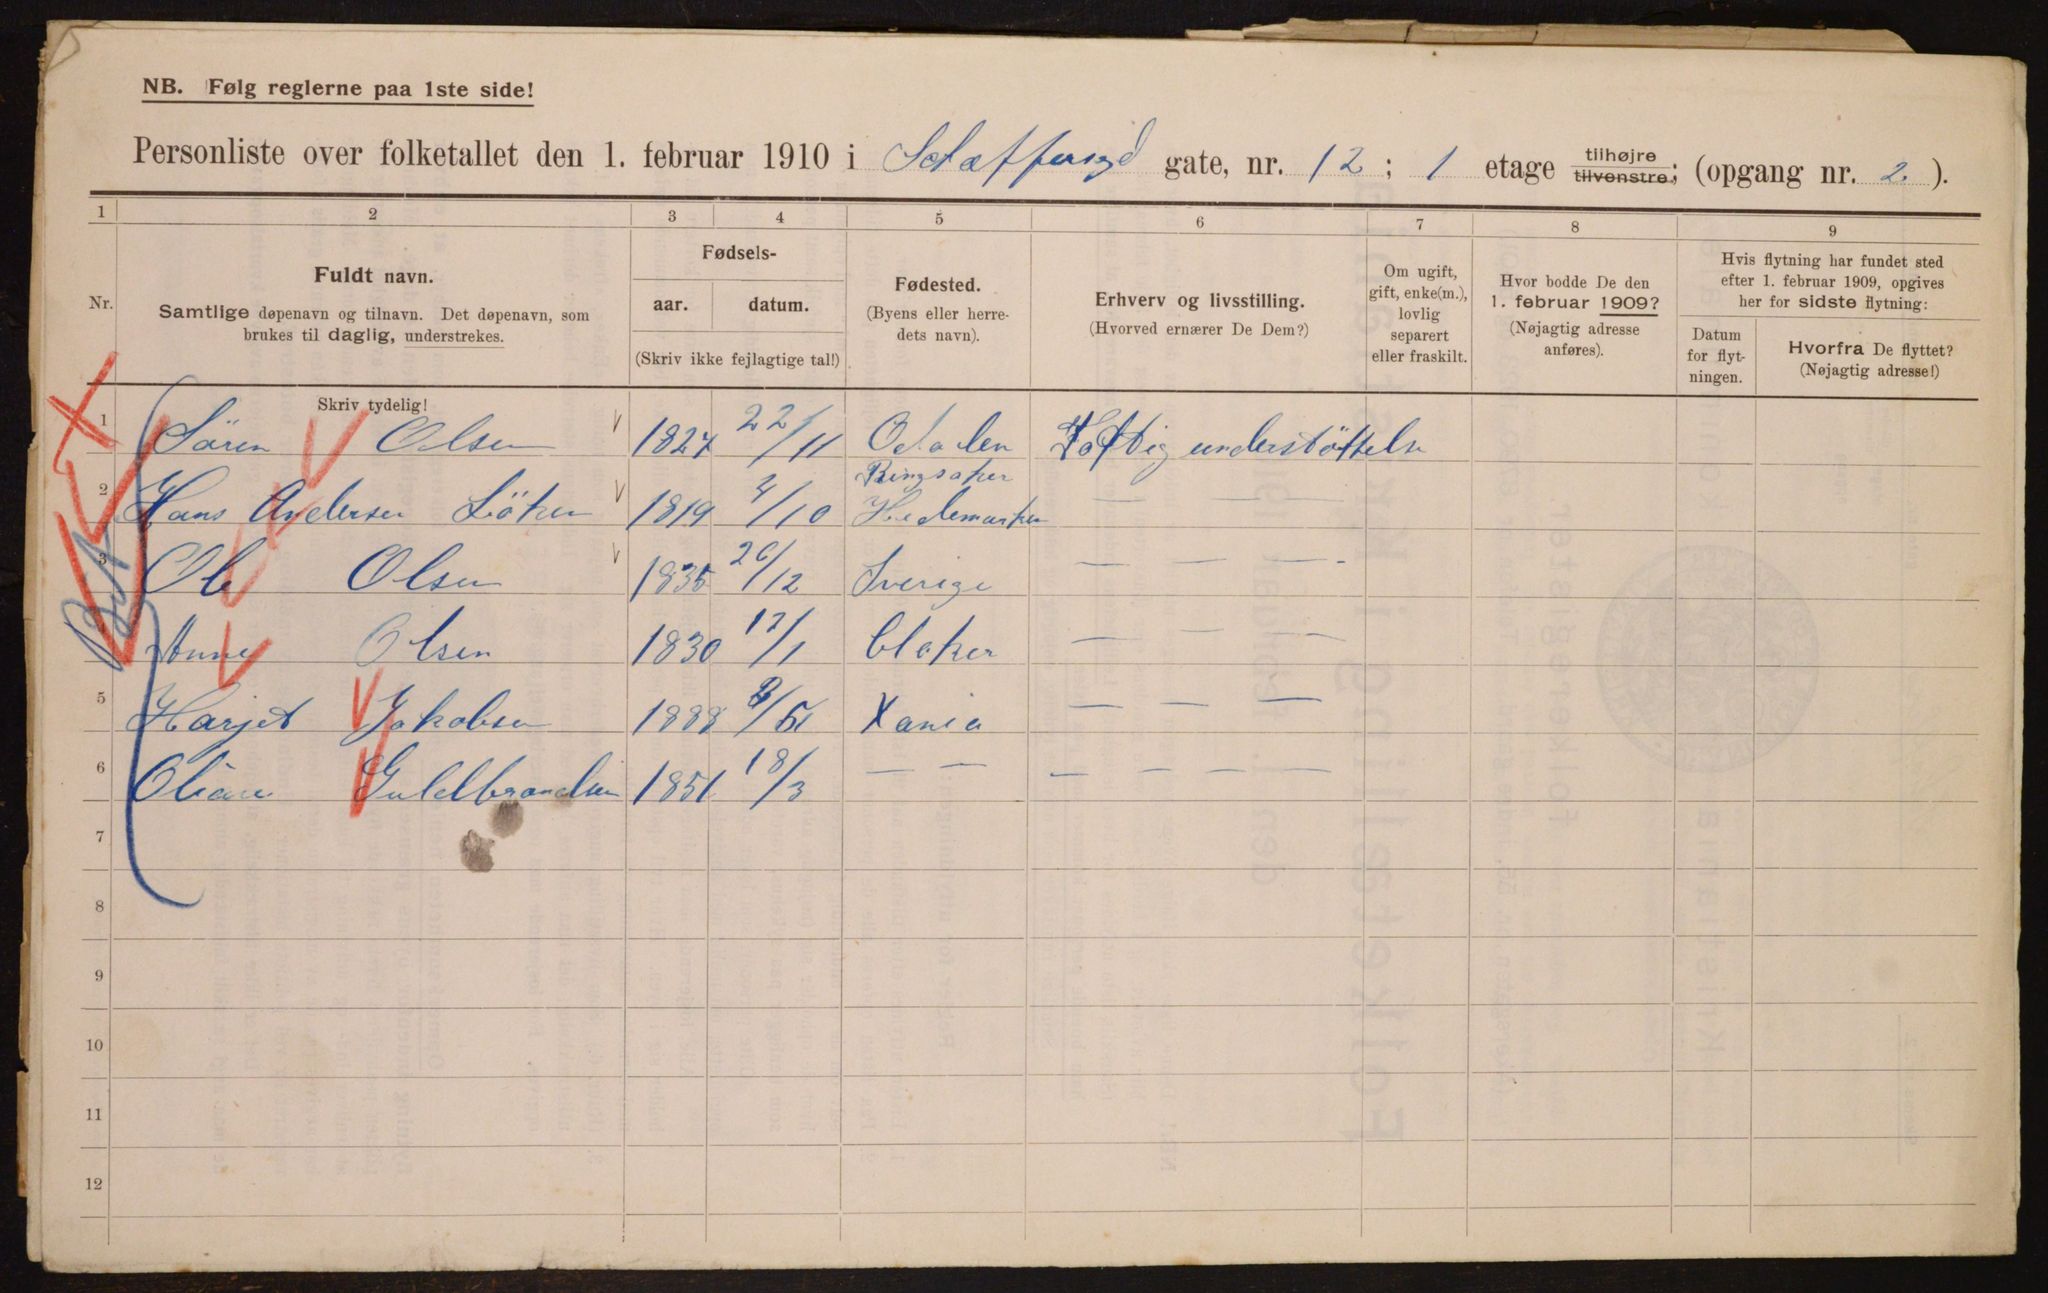 NB. Følg reglerne paa 1ste side!
Personliste over folketallet den 1. februar 1910 i gate, nr. 12; 1 etage tilhøjre tilvenstre; (opgang nr. 2.).
1 2 3 4 5 6 7 8 9
Nr.
Fuldt navn.
Samtlige døpenavn og tilnavn. Det døpenavn, som
brukes til daglig, understrekes.
Skriv tydelig!
Fødsels-
aar. datum.
(Skriv ikke fejlagtige tal!)
Fødested.
(Byens eller herre-
dets navn).
Erhverv og livsstilling.
(Hvorved ernærer De Dem?)
Om ugift,
gift, enke(m.),
lovlig
separert
eller fraskilt.
Hvor bodde De den
1. februar 1909?
(Nøjagtig adresse
anføres).
Hvis flytning har fundet sted
efter 1. februar 1909, opgives
her for sidste flytning:
Datum
for flyt-
ningen.
Hvorfra De flyttet?
(Nøjagtig adresse!)
1 Sören Olsen 1827 22/11 Odalen Fattig understöttelse
2 Hans Andersen Löken 1819 4/10 Ringsaker Hedemarken — — —
3 Ole Olsen 1835 26/12 Sverige — — — —
4 Anne Olsen 1830 17/1 — — —
5 Jakobsen 1888 Xania — — —
6 Guldbrandsen 1851 18/3 — — — — — —
7
8
9
10
11
12